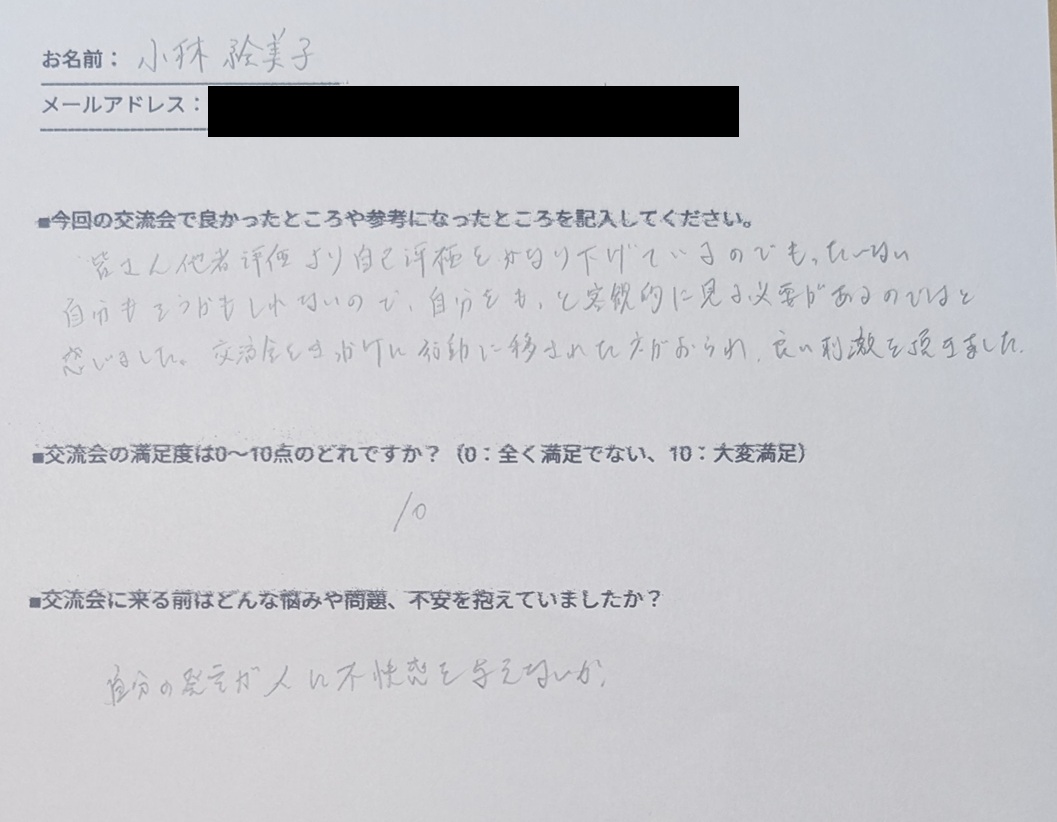 お名前： 小林 絵美子
メールアドレス：
■今回の交流会で良かったところや参考になったところを記入してください。
皆さん他者評価より自己評価をかなり下げているのでもったいない
自分もそうかもしれないので、自分をもっと客観的に見る必要があるのではと
感じました。交流会をきっかけに行動に移された方がおられ、良い刺激を頂きました。
■交流会の満足度は0～10点のどれですか？（0：全く満足でない、10：大変満足）
10
■交流会に来る前はどんな悩みや問題、不安を抱えていましたか？
自分の発言が人に不快感を与えないか、